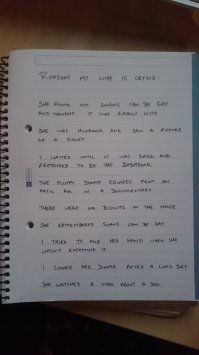 REASONS MY WIFE IS CRYING:
SHE FOUND OUT SWANS CAN BE GAY
AND THOUGHT IT WAS REALLY NICE
SHE WAS HUNGOVER AND SAW A PICTURE
OF A PIGLET
I WAITED UNTIL IT WAS DARK AND
PRETENDED TO BE THE BABADOOK
THE FLOPPY BUNNY ESCAPED FROM AN
ARCTIC FOX IN A DOCUMENTARY
THERE WERE NO BISCUITS IN THE HOUSE
SHE REMEMBERED SWANS CAN BE GAY
I TRIED TO HOLD HER HAND WHEN SHE
WASN'T EXPECTING IT
I COOKED HER DINNER AFTER A LONG DAY
SHE WATCHED A VIDEO ABOUT A DOG.